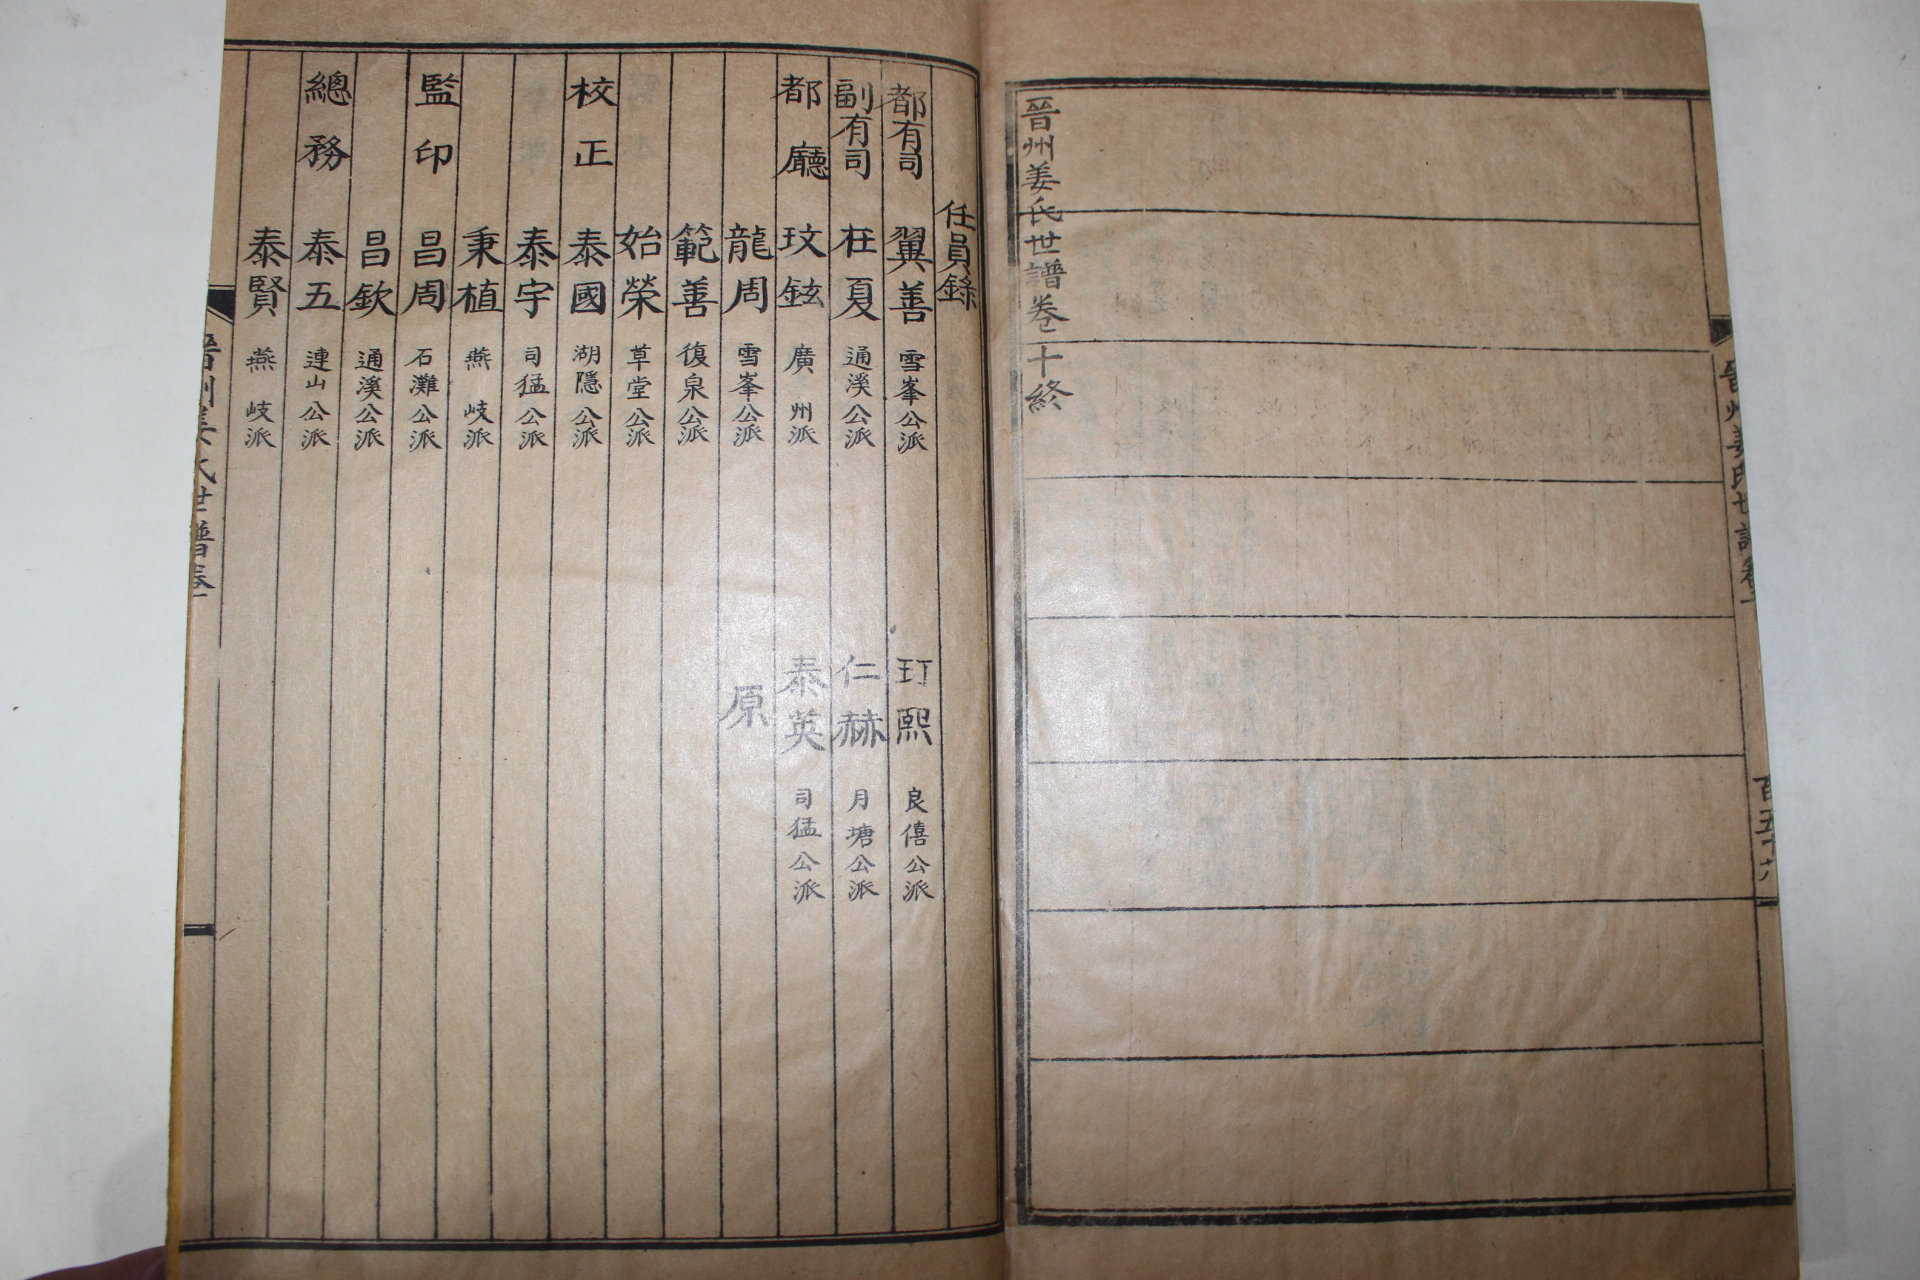 晉州姜氏世譜卷二十終
任員錄
都有司 翼善 雪峯公派 玎熙 良僖公派
副有司 枉夏 通溪公派 仁赫 月塘公派
都廳 玟鉉 廣州派 泰英 司猛公派
龍周 雪峯公派 原
範善 復泉公派
始榮 草堂公派
校正 泰國 湖隱公派
泰宇 司猛公派
秉植 燕岐派
監印 昌周 石灘公派
昌欽 通溪公派
總務 泰五 連山公派
泰賢 燕岐派
晉州姜氏世譜卷